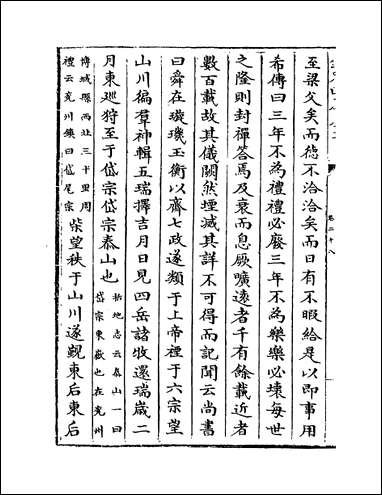 至梁父矣而徳不洽洽矣而日有不暇給是以即事用
希傳曰三年不為禮禮必廢三年不為樂樂必壊每世
之隆則封禪答焉及衰而息厥曠逺者千有餘載近者
數百載故其儀闕然堙滅其詳不可得而記聞云尚書
曰舜在璇璣玉衡以齊七政遂類于上帝禋于六宗望
山川徧羣神輯五瑞擇吉月日見四岳諸牧還瑞嵗二
月東廵狩至于岱宗岱宗泰山也
括地志云泰山一曰
岱宗東嶽也在兖州
博城縣西北三十里周
禮云兖州鎮曰岱尾宗
柴望秩于山川遂覲東后東后
卷二十八